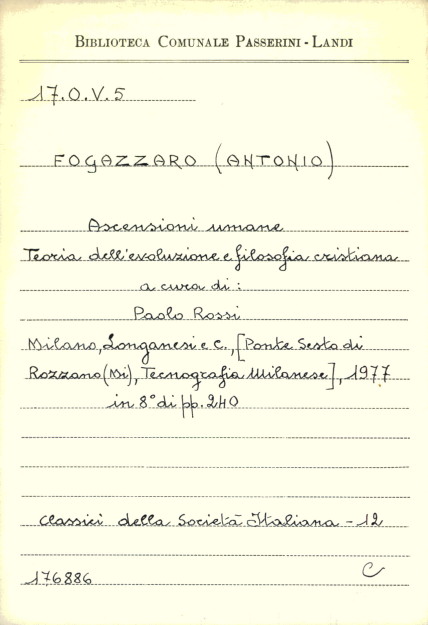 BIBLIOTECA COMUNALE PASSERINI - LANDI
17.O.V.5
FOGAZZARO (ANTONIO)
Ascensioni umane
Teoria dell'evoluzione e filosofia cristiana
a cura di :
Paolo Rossi
Milano, Longanesi e C., [Ponte Sesto di
Rozzano (Mi), Tecnografia Milanese], 1977
in 8° di pp. 240
Classici della Società Italiana - 12
176886 C